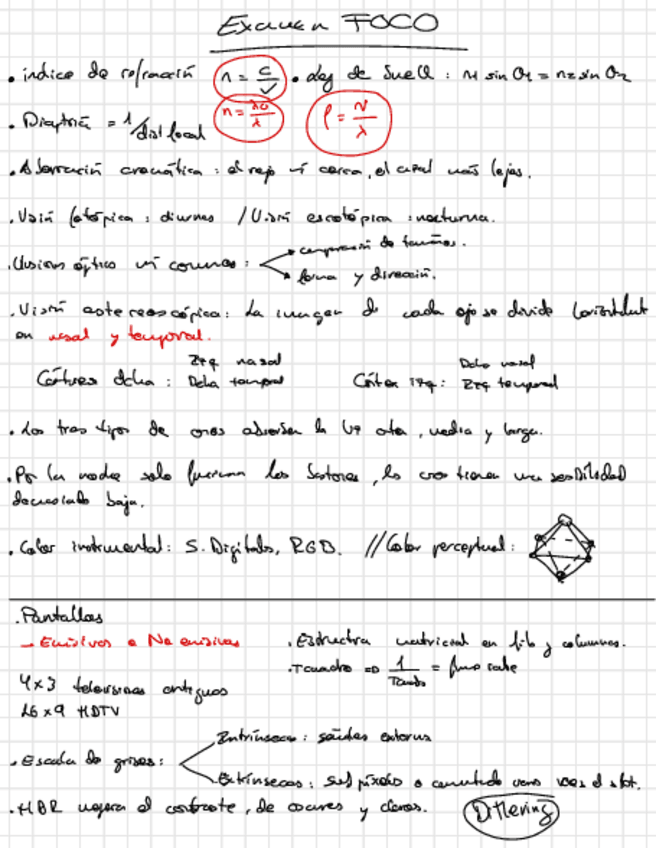 Examen FOCO
• índice de refracción n = c/v • Ley de Snell : n1 sin θ1 = n2 sin θ2
• Dioptría = 1/dist focal n = λ0/λ f = v/λ
• Aberración cromática : el rojo + cerca, el azul más lejos.
• Visión fotópica : diurnes / Visión escotópica : nocturna.
• Ilusions óptico comunes : comparación de tamaños.
forma y dirección.
• Visión estereoscópica : La imagen de cada ojo se divide
en nasal y temporal.
Izq nasal Dcho nasal
Córtex dcha : Dcha temporal Córtex izq : Izq temporal
• Los tres tipos de conos absorben la corta, media y larga.
• Por la noche solo funcionan los bastones, los conos tienen una sensibilidad
demasiado baja.
• Color instrumental : S. Digitals, RGB. // Color perceptual :
• Pantallas
→ Emisivas o No emisivas • Estructura matricial en fila y columnas.
• Tcuadro => 1/Tcuadro = frame rate
4x3 televisiones antiguas
16x9 HDTV
• Escala de grises : Intrínseca : señales externas
Extrínsecas : subpíxeles o conmutado varias veces el slot.
• HDR mejora el contraste, de oscuros y claros. Dithering